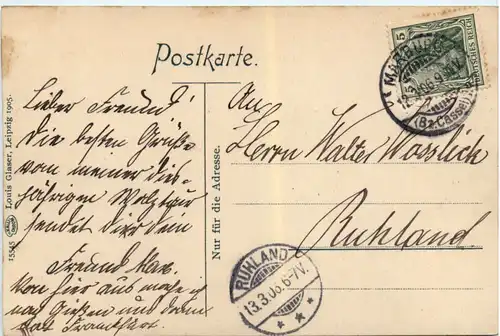 Postkarte.
5
DEUTSCHES REICH
MARBURG
12.3.06.9-10V.
(Bz. Cassel)
Lieber Freund!
Die besten Grüße
von meiner dies-
jährigen Walztour
sendet dir dein
Freund Max.
Von hier aus mache ich
nach Gießen und dann
nach Frankfurt.
An
Herrn Walter
Ruhland.
Nur für die Adresse.
Louis Glaser, Leipzig 1905.
RUHLAND
13.3.06.6-7V.